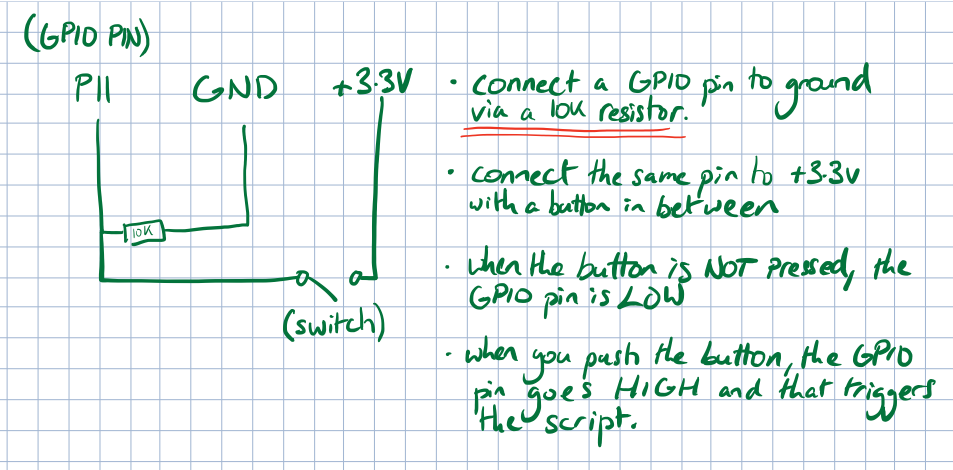 (GPIO PIN)
P11 GND +3.3V
10K
(switch)
• connect a GPIO pin to ground
via a 10K resistor.
• connect the same pin to +3.3v
with a button in between
• when the button is NOT pressed, the
GPIO pin is LOW
• when you push the button, the GPIO
pin goes HIGH and that triggers
the script.